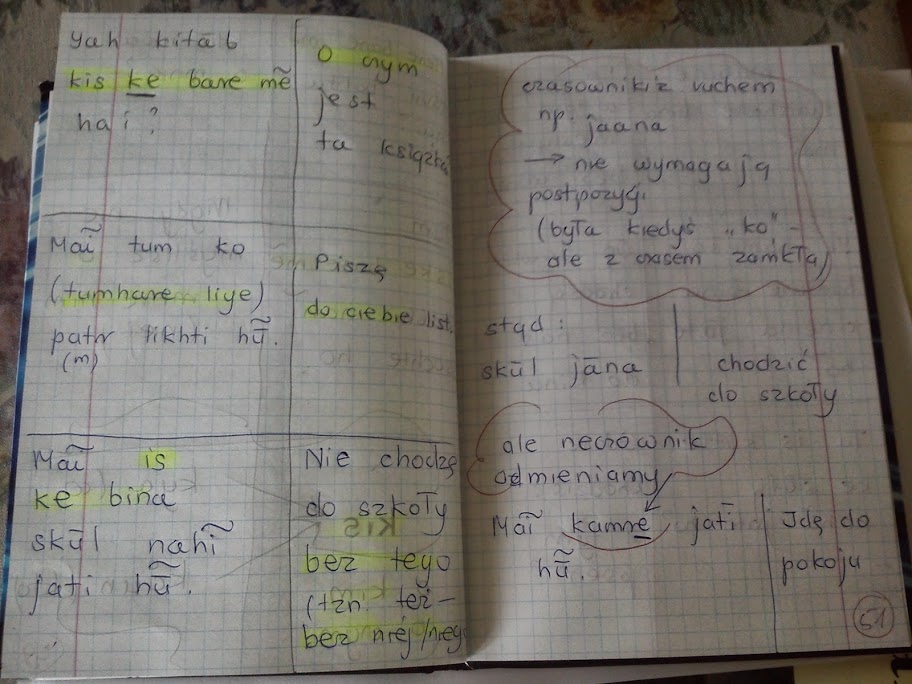 yah kitāb
kis ke bare mẽ
hai?
O czym
jest
ta książka
Maĩ tum ko
(tumhare liye)
patr likhti hũ.
(m)
Piszę
do ciebie list.
Maĩ is
ke bina
skūl nahĩ
jati hũ.
Nie chodzę
do szkoły
bez tego
(tzn. też –
bez niej/niego
czasowniki z ruchem
np. jaana
→ nie wymagają
postpozycji.
(była kiedyś „ko" –
ale z czasem zanikła)
stąd:
skūl jāna
chodzić
do szkoły
ale rzeczownik
odmieniamy
Maĩ kamre jati
hũ.
Idę do
pokoju
51